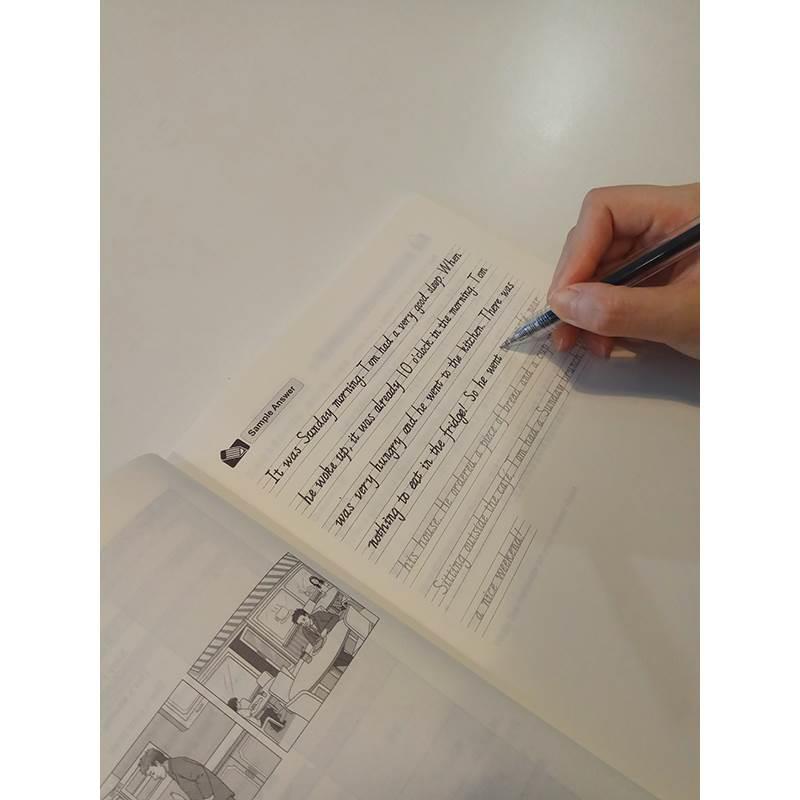 Sample Answer
It was Sunday morning. Tom had a very good sleep. When
he woke up, it was already 10 o'clock in the morning. Tom
was very hungry and he went to the kitchen. There was
nothing to eat in the fridge! So he went
his house. He ordered a piece of bread and a cup
Sitting outside the café, Tom had a Sunday brunch
a nice weekend!